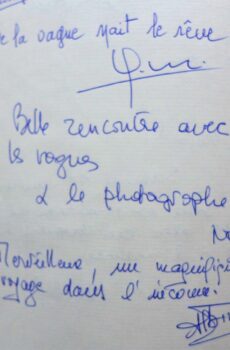 e la vague naît le rêve
Belle rencontre avec
les vagues
& le photographe
Merveilleux, un magnifiq
voyage dans l'inconnu.